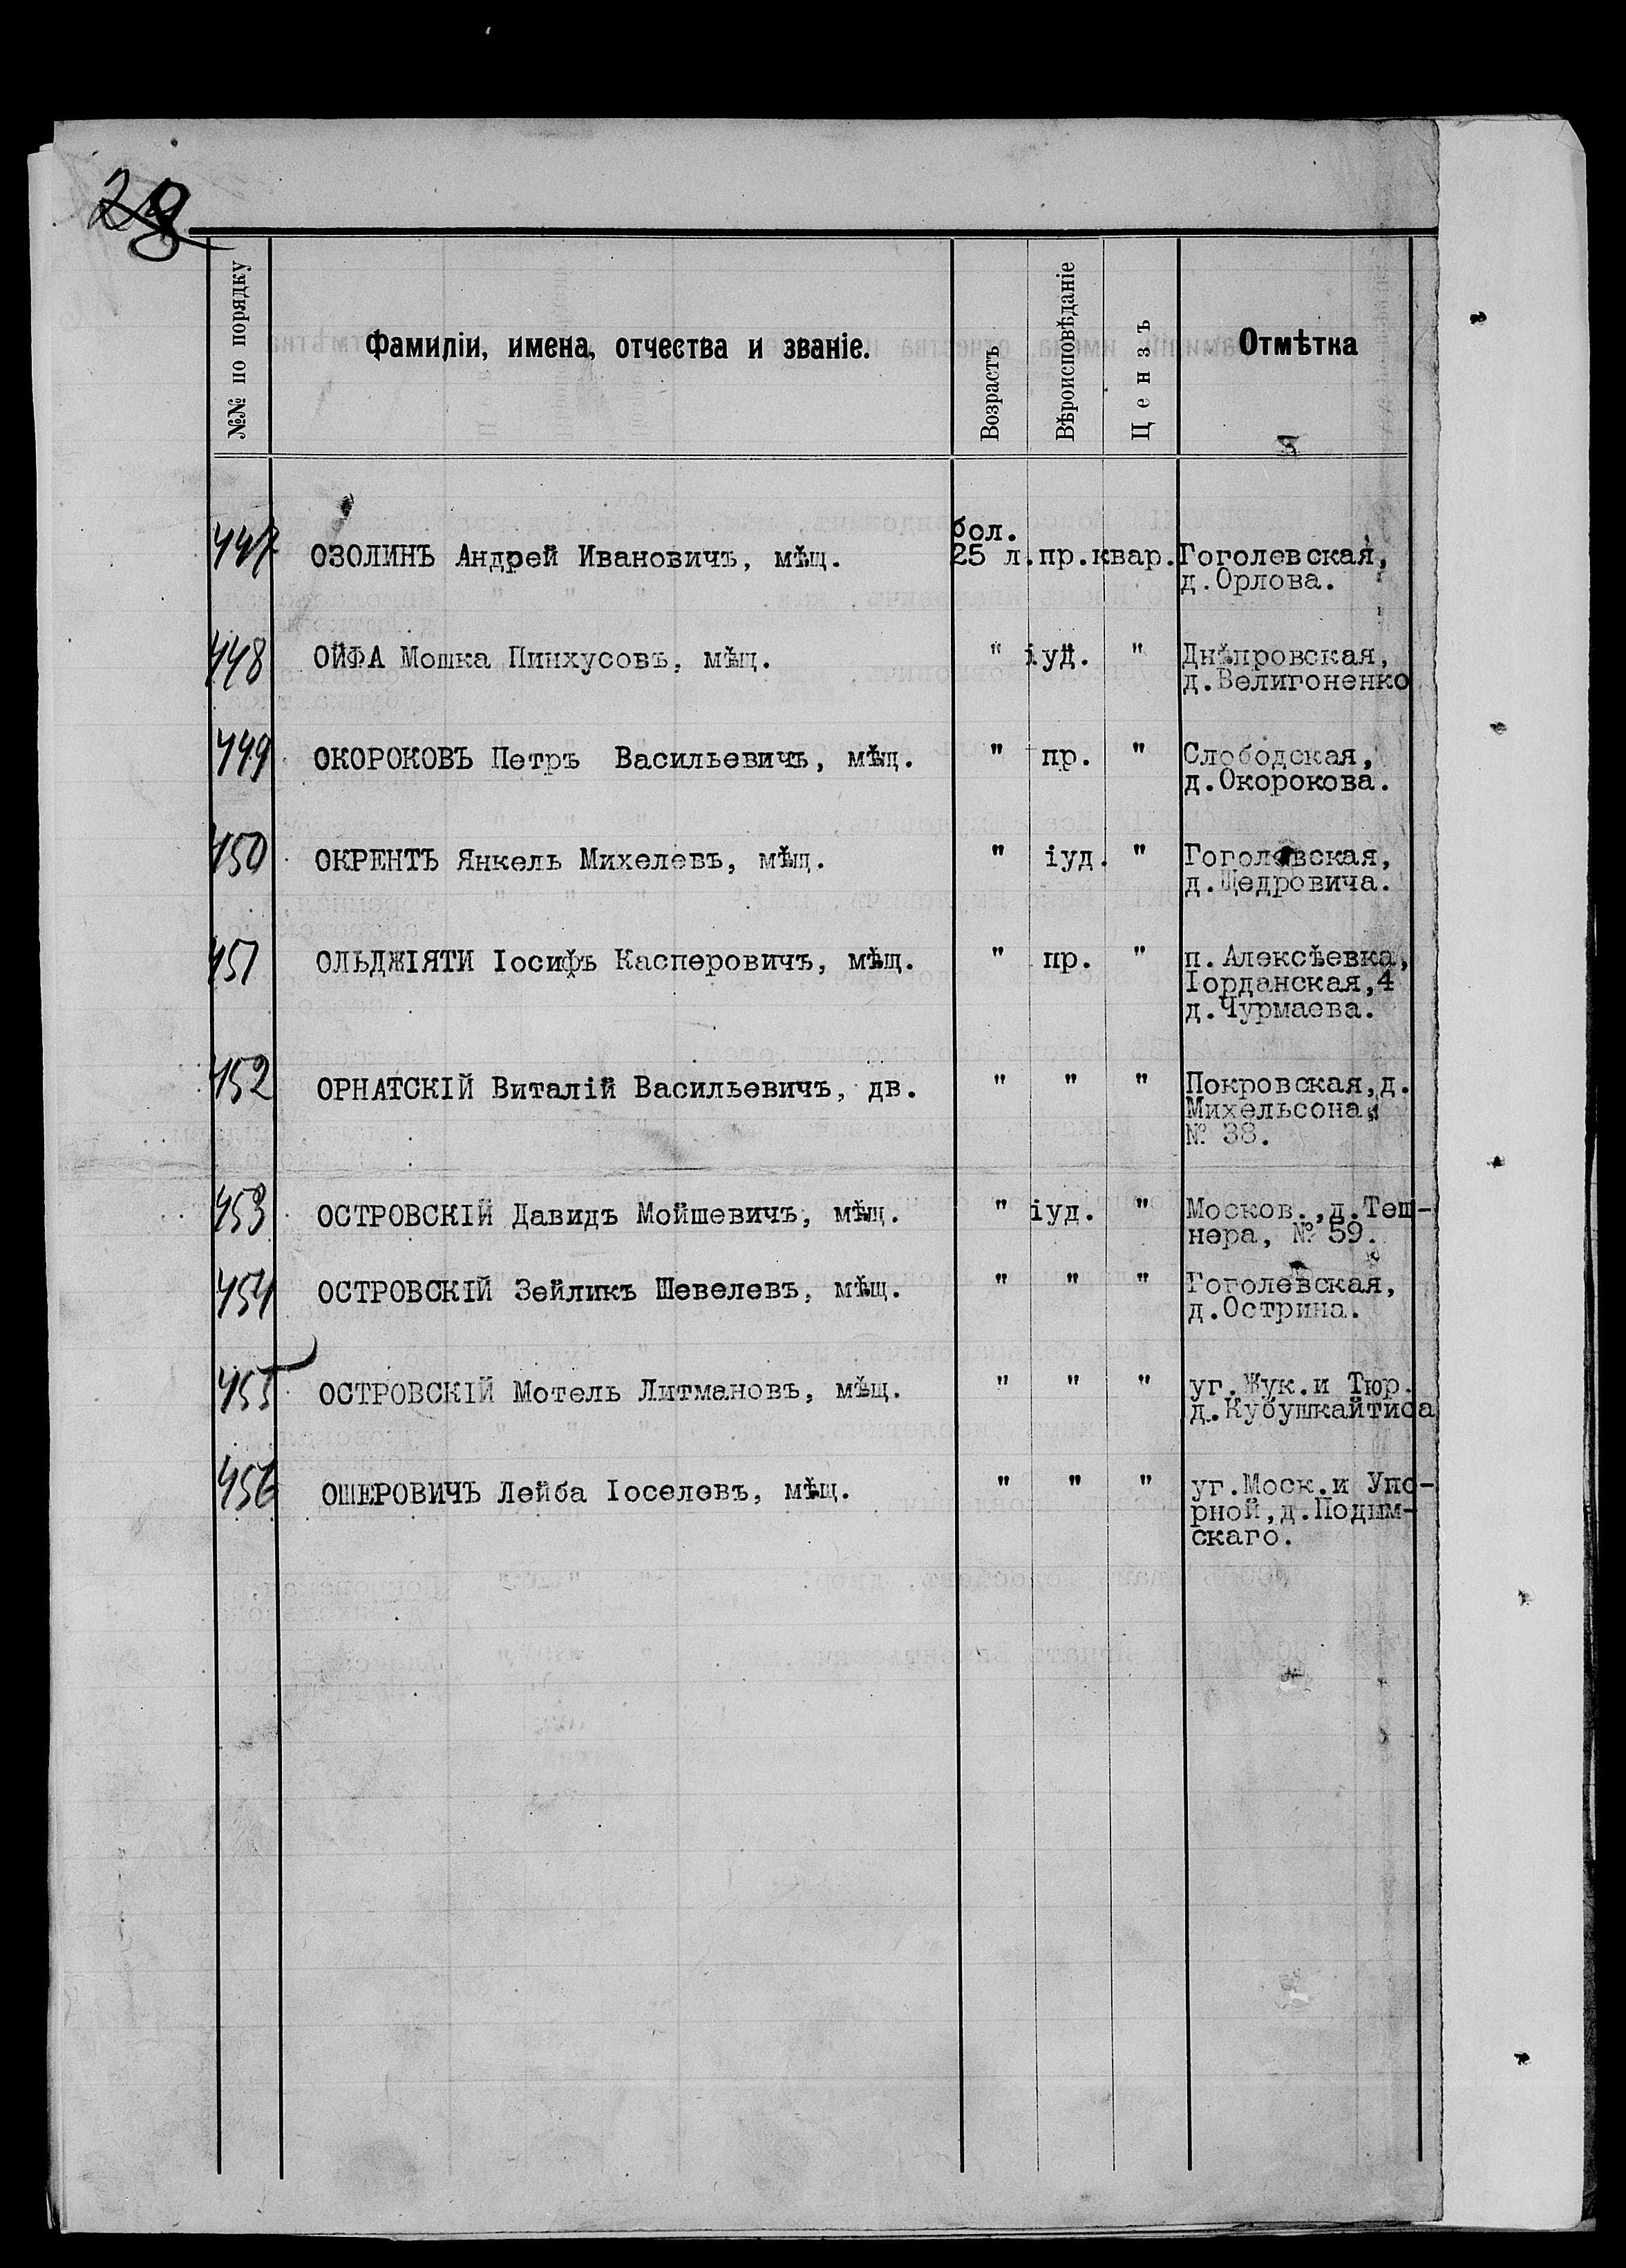 №№ по порядку Фамиліи, имена, отчества и званіе. Возрастъ Вѣроисповѣданіе Цензъ Отмѣтка
бол.
447 ОЗОЛИНЪ Андрей Ивановичъ, мѣщ. 25 л. пр. квар. Гоголевская,
д.Орлова.
448 ОЙФА Мошка Пинхусовъ, мѣщ. " іуд. " Днѣпровская,
д.Велигоненко
449 ОКОРОКОВЪ Петръ Васильевичъ, мѣщ. " пр. " Слободская,
д.Окорокова.
450 ОКРЕНТЪ Янкель Михелевъ, мѣщ. " іуд. " Гоголевская,
д.Щедровича.
451 ОЛЬДЖІЯТИ Іосифъ Касперовичъ, мѣщ. " пр. " п.Алексѣевка,
Іорданская,4
д.Чурмаева.
452 ОРНАТСКІЙ Виталій Васильевичъ, дв. " " " Покровская,д.
Михельсона,
№ 38.
453 ОСТРОВСКІЙ Давидъ Мойшевичъ, мѣщ. " іуд. " Москов.,д.Теш-
нера, № 59.
454 ОСТРОВСКІЙ Зейликъ Шевелевъ, мѣщ. " " " Гоголевская,
д.Острина.
455 ОСТРОВСКІЙ Мотель Литмановъ, мѣщ. " " " уг.Жук.и Тюр.
д.Кубушкайтиса
456 ОШЕРОВИЧЪ Лейба Іоселевъ, мѣщ. " " " уг.Моск.и Упо-
рной,д.Подым-
скаго.